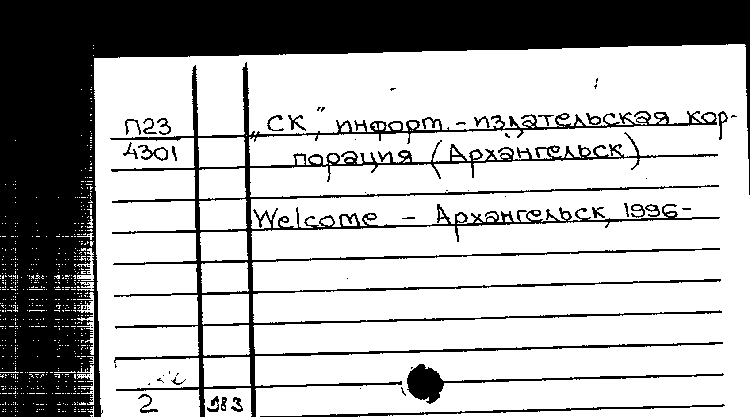 П23
4301
„СК", информ.-издательская кор-
порация (Архангельск)
Welcome - Архангельск, 1996-
2